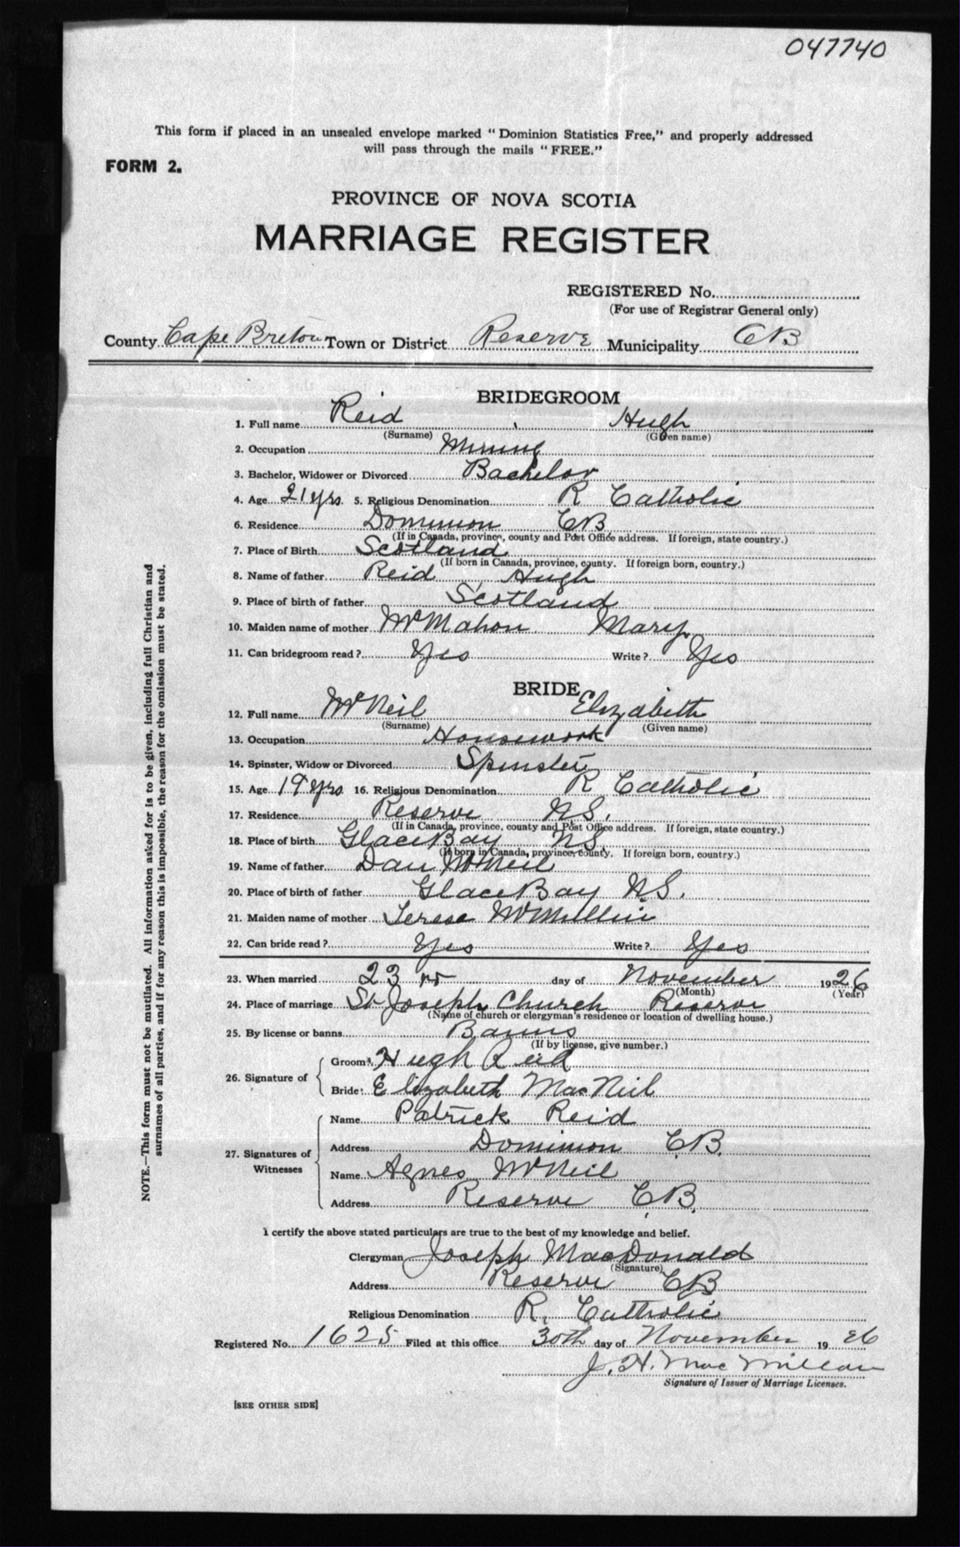 047740
This form if placed in an unsealed envelope marked "Dominion Statistics Free," and properly addressed
will pass through the mails "FREE."
FORM 2.
PROVINCE OF NOVA SCOTIA
MARRIAGE REGISTER
REGISTERED No.
(For use of Registrar General only)
County Cape Breton Town or District Reserve Municipality CB
BRIDEGROOM
1. Full name Reid , Hugh
(Surname) (Given name)
2. Occupation Mining
3. Bachelor, Widower or Divorced Bachelor
4. Age 21 yrs. 5. Religious Denomination R Catholic
6. Residence Dominion CB
(If in Canada, province, county and Post Office address. If foreign, state country.)
7. Place of Birth Scotland
(If born in Canada, province, county. If foreign born, country.)
8. Name of father Reid, Hugh
9. Place of birth of father Scotland
10. Maiden name of mother McMahon Mary
11. Can bridegroom read? Yes Write? Yes
BRIDE
12. Full name McNeil Elizabeth
(Surname) (Given name)
13. Occupation Housework
14. Spinster, Widow or Divorced Spinster
15. Age 19 yrs 16. Religious Denomination R Catholic
17. Residence Reserve NS.
(If in Canada, province, county and Post Office address. If foreign, state country.)
18. Place of birth Glace Bay NS.
(If born in Canada, province, county. If foreign born, country.)
19. Name of father Dan McNeil
20. Place of birth of father Glace Bay NS.
21. Maiden name of mother Terese McMullin
22. Can bride read? Yes Write? Yes
23. When married 23 rd day of November 1926
(Month) (Year)
24. Place of marriage St Joseph Church Reserve
(Name of church or clergyman's residence or location of dwelling house.)
25. By license or banns Banns
(If by license, give number.)
26. Signature of Groom: Hugh Reid
Bride: Elizabeth MacNeil
27. Signatures of Witnesses Name Patrick Reid
Address Dominion CB.
Name Agnes McNeil
Address Reserve CB.
I certify the above stated particulars are true to the best of my knowledge and belief.
Clergyman Joseph MacDonald
(Signature)
Address Reserve CB
Religious Denomination R. Catholic
Registered No. 1625 Filed at this office 30th day of November 19 26
J. H. MacMillan
Signature of Issuer of Marriage Licenses.
[SEE OTHER SIDE]
NOTE.—This form must not be mutilated. All information asked for is to be given, including full Christian and
surnames of all parties, and if for any reason this is impossible, the reason for the omission must be stated.